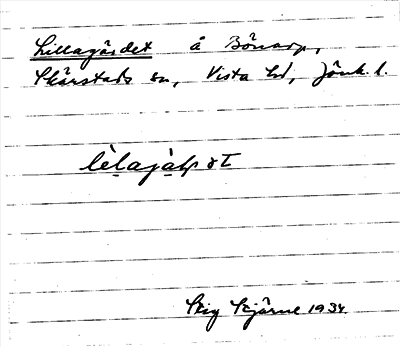 Lillagärdet å Bönarp,
Skärstads sn, Vista hd, Jönk. l.
Stig Stjärne 1934.